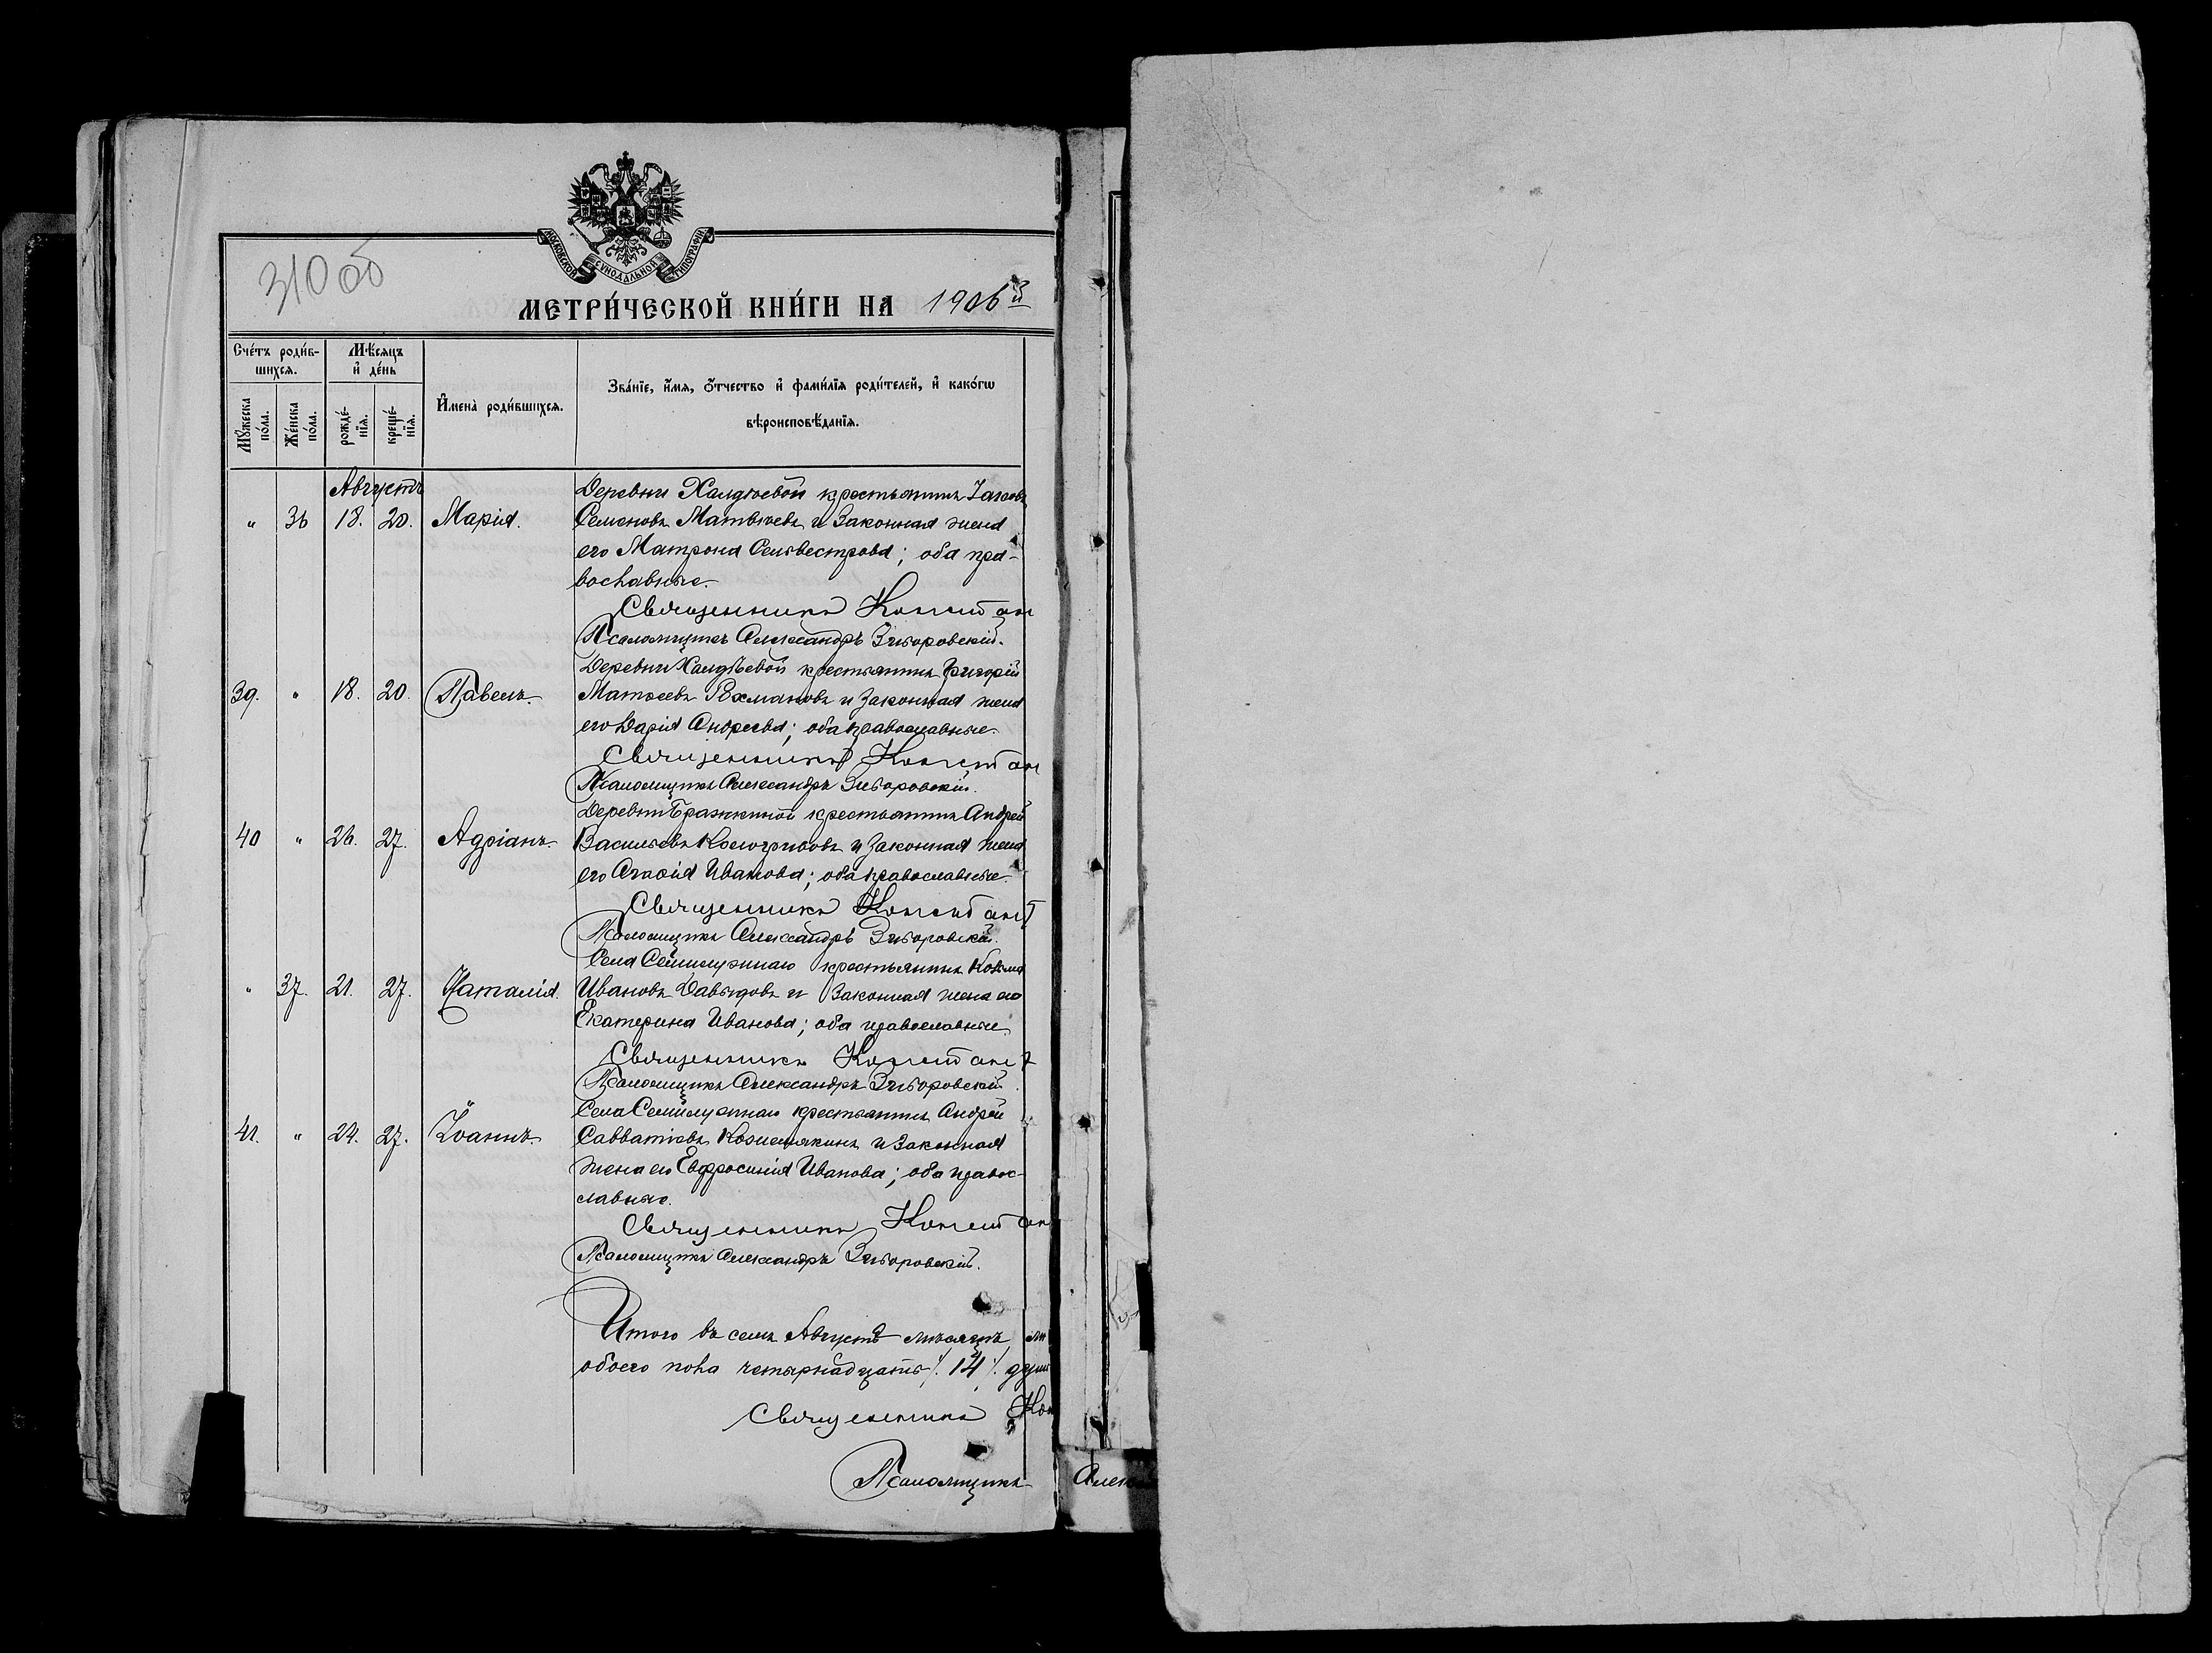 310 об
МОСКОВСКОЙ СѴНОДАЛЬНОЙ ТИПОГРАФІИ
МЕТРИ́ЧЕСКОЙ КНИ́ГИ НА 1906й
Сче́тъ роди́в-
шихся.
Мѣ́сяцъ
и҆ де́нь
Мꙋ́жеска
по́ла.
Же́нска
по́ла.
рожде́-
нїя.
креще́-
нїя.
И҆мена̀ роди́вшихся.
Зва́нїе, и҆́мя, ѻ҆́тчество и҆ фами́лїя роди́телей, и҆ како́гѡ
вѣроисповѣ́данїя.
Августъ
" 36 18. 20. Марія.
Деревни Халдѣевой крестьянинъ
Семеновъ Матвѣевъ и законная жена
его Матрона Сельвестрова; оба пра-
вославные.
Священникъ Констан
Псаломщикъ Александръ Зиборовскій.
39. " 18. 20. Павелъ.
Деревни Халдѣевой крестьянинъ Григорій
Матвеевъ Рахмановъ и законная жена
его Дарія Андреева; оба православные.
Священникъ Констан
Псаломщикъ Александръ Зиборовскій.
40 " 26. 27. Адріанъ.
Деревни Бражкиной крестьянинъ Андрей
Васильевъ Кологривовъ и законная жена
его Агафія Иванова; оба православные.
Священникъ Констант
Псаломщикъ Александръ Зиборовскій.
" 37. 21. 27. Наталія.
Села крестьянинъ Козьма
Ивановъ Давыдовъ и законная жена его
Екатерина Иванова; оба православные.
Священникъ Констант
Псаломщикъ Александръ Зиборовскій.
41. " 24. 27. Іоаннъ.
Села крестьянинъ Андрей
Савватіевъ Кожемякинъ и законная
жена его Евфросинія Иванова; оба правос-
лавные.
Священникъ Констан
Псаломщикъ Александръ Зиборовскій.
Итого въ семъ Августѣ мѣсяцѣ
обоего пола четырнадцать /. 14 /. душ
Священникъ Кон
Псаломщикъ Алек